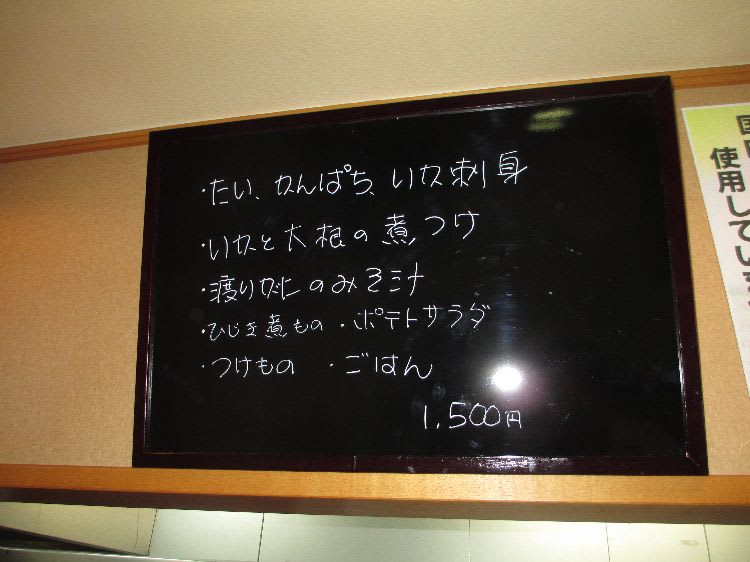 ・たい、かんぱち、いか刺身
・いかと大根の煮つけ
・渡りがにのみそ汁
・ひじき煮もの ・ポテトサラダ
・つけもの ・ごはん
1,500円
使用していま